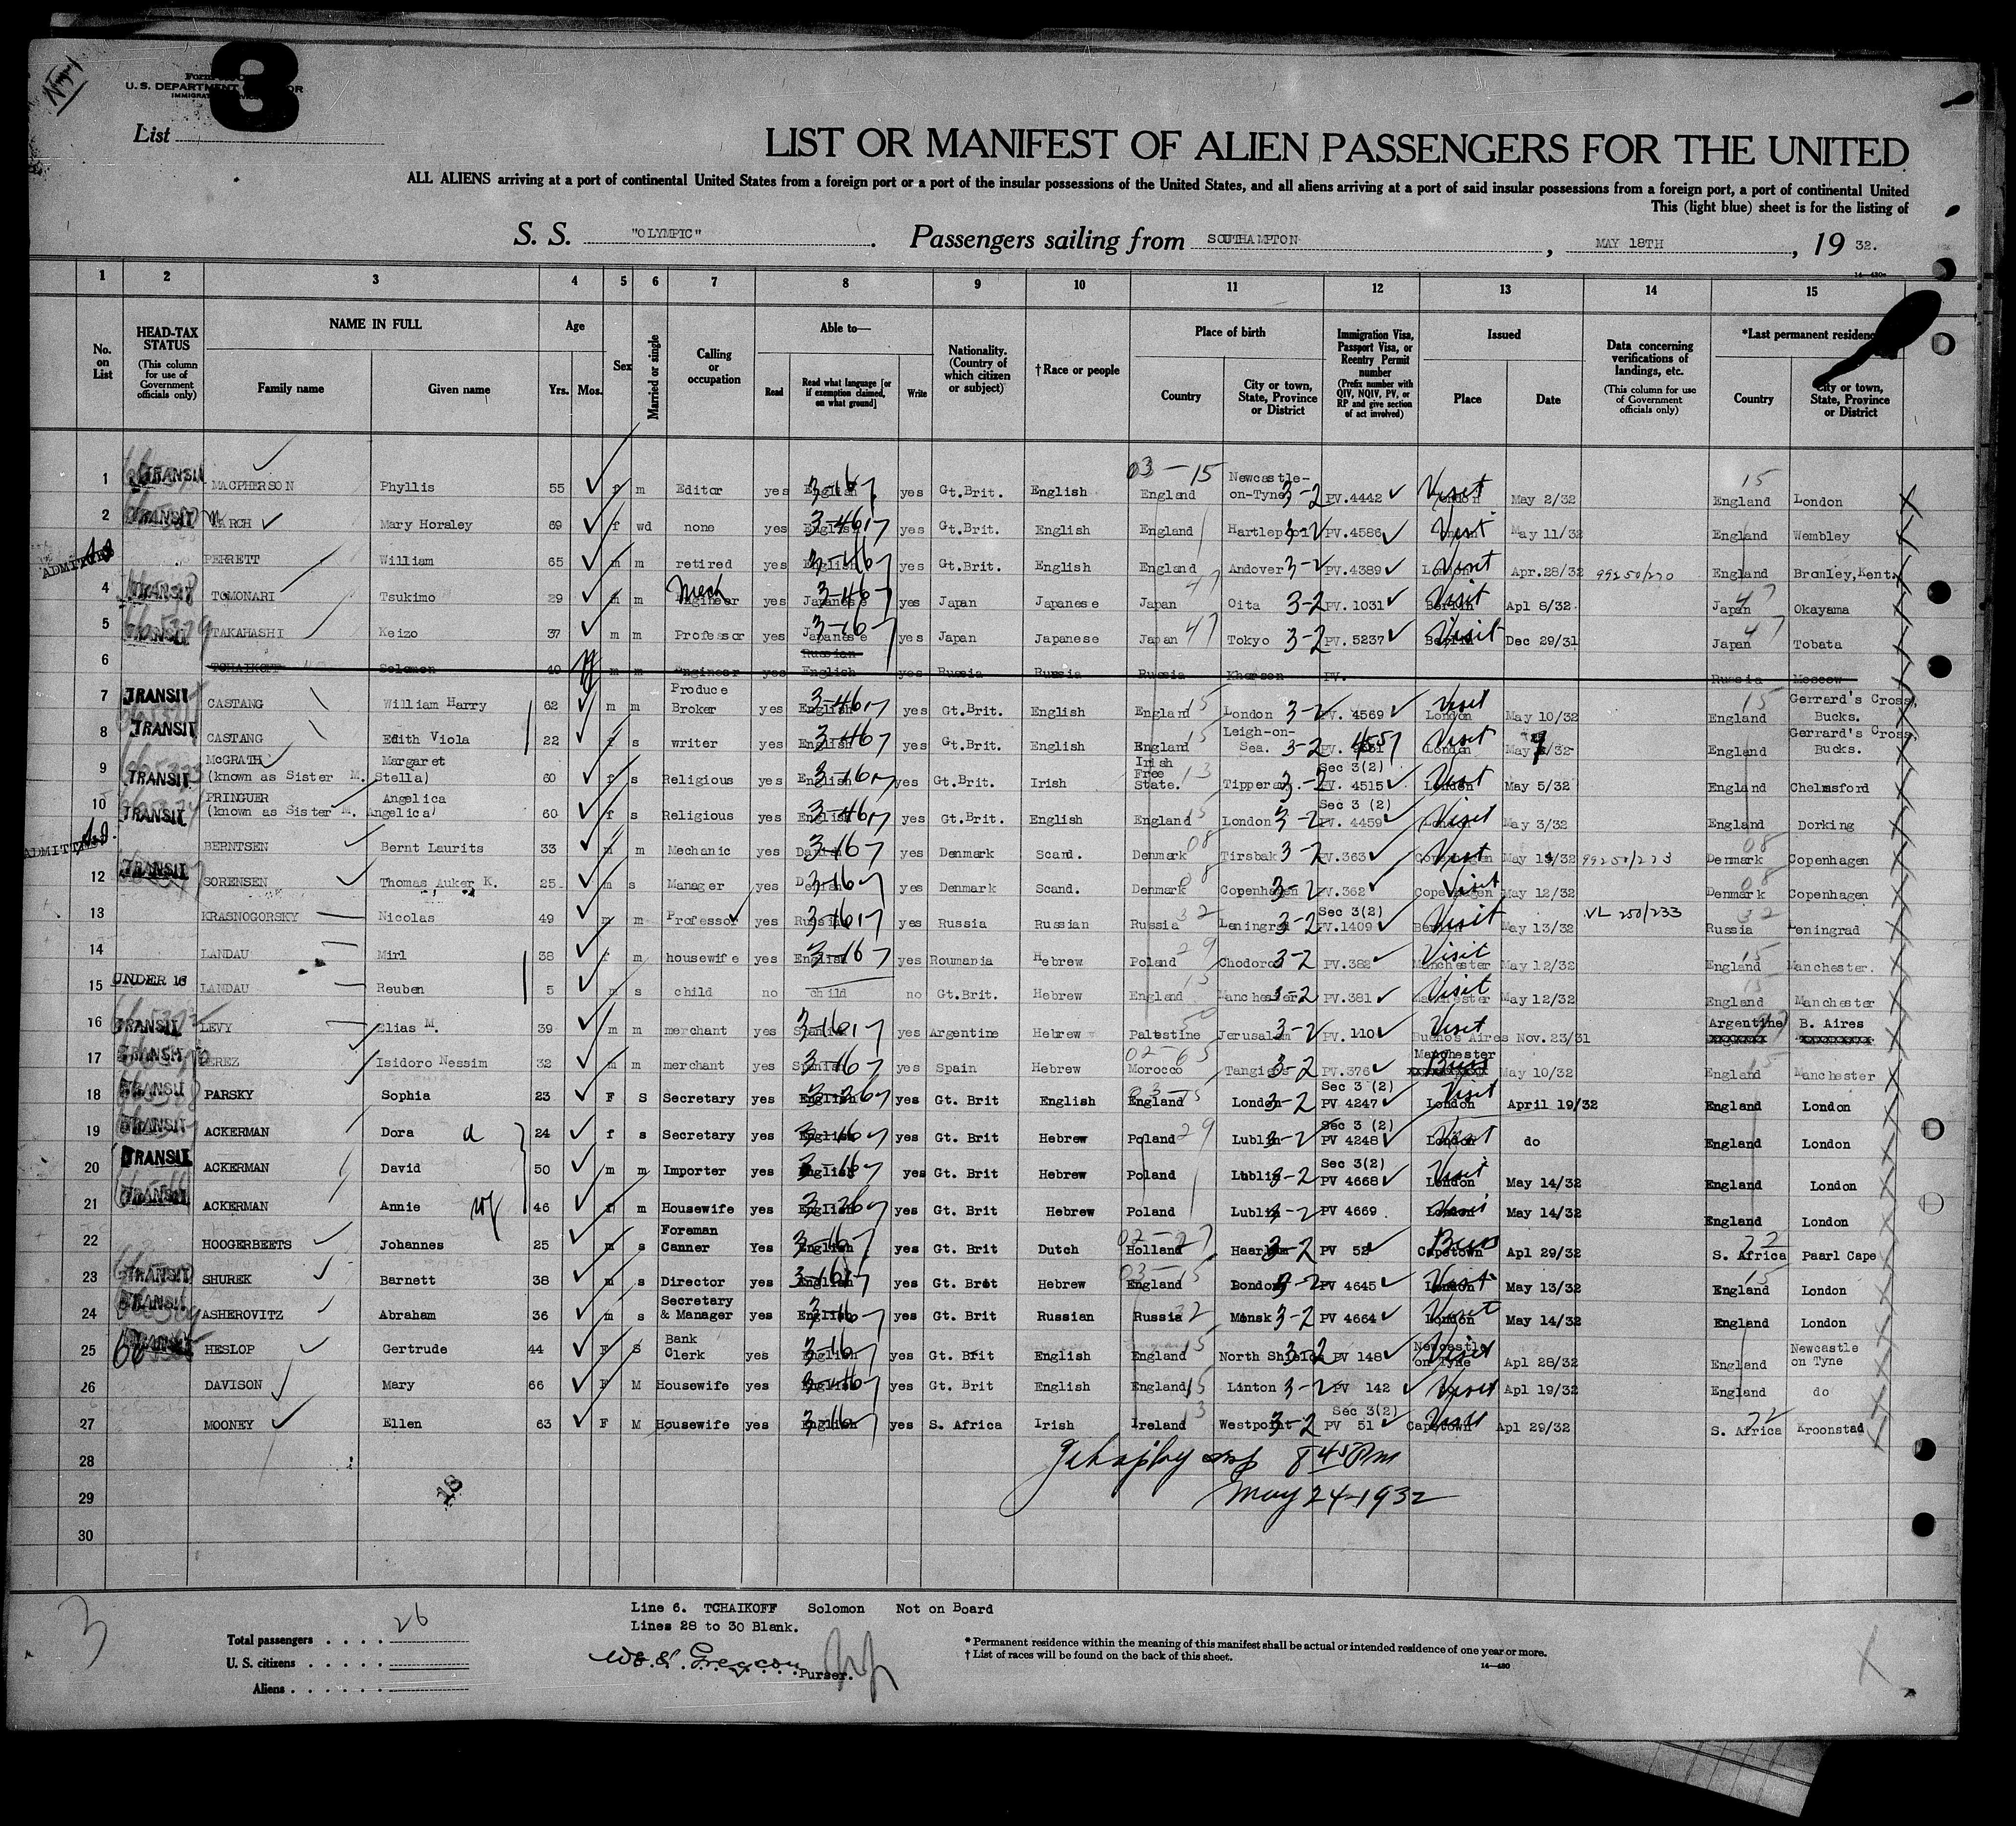 3
U. S. DEPARTMENT
List
LIST OR MANIFEST OF ALIEN PASSENGERS FOR THE UNITED
ALL ALIENS arriving at a port of continental United States from a foreign port or a port of the insular possessions of the United States, and all aliens arriving at a port of said insular possessions from a foreign port, a port of continental United
This (light blue) sheet is for the listing of
S. S. "OLYMPIC". Passengers sailing from SOUTHAMPTON, MAY 18TH, 19 32.
1 2 3 4 5 6 7 8 9 10 11 12 13 14 15
No. on List
HEAD-TAX STATUS (This column for use of Government officials only)
NAME IN FULL Family name Given name
Age Yrs. Mos.
Sex
Married or single
Calling or occupation
Able to— Read Read what language [or if exemption claimed, on what ground] Write
Nationality. (Country of which citizen or subject)
†Race or people
Place of birth Country City or town, State, Province or District
Immigration Visa, Passport Visa, or Reentry Permit number (Prefix number with QIV, NQIV, PV, or RP and give section of act involved)
Issued Place Date
Data concerning verifications of landings, etc. (This column for use of Government officials only)
*Last permanent residence Country City or town, State, Province or District
1 TRANSIT MACPHERSON Phyllis 55 f m Editor yes English yes Gt.Brit. English England Newcastle-on-Tyne 3-2 PV.4442 Visit May 2/32 England London
2 TRANSIT MARCH Mary Horsley 69 f wd none yes English yes Gt.Brit. English England Hartlepool PV.4586 Visit May 11/32 England Wembley
ADMITTED PERRETT William 65 m m retired yes English yes Gt.Brit. English England Andover 3-2 PV.4389 London Visit Apr.28/32 99250/270 England Bromley,Kent.
4 TRANSIT TOMONARI Tsukimo 29 m m Mech Engineer yes Japanese yes Japan Japanese Japan Oita 3-2 PV.1031 Berlin Visit Apl 8/32 Japan Okayama
5 TRANSIT TAKAHASHI Keizo 37 m m Professor yes Japanese yes Japan Japanese Japan Tokyo 3-2 PV.5237 Berlin Visit Dec 29/31 Japan Tobata
6 TCHAIKOFF Solomon 40 m m Engineer yes Russian English yes Russia Russia Russia Kherson PV. Russia Moscow
7 TRANSIT CASTANG William Harry 62 m m Produce Broker yes English yes Gt.Brit. English England London 3-2 PV. 4569 London Visit May 10/32 England Gerrard's Cross, Bucks.
8 TRANSIT CASTANG Edith Viola 22 f s writer yes English yes Gt.Brit. English England Leigh-on-Sea. 3-2 PV. 4557 London Visit May 9/32 England Gerrard's Cross, Bucks.
9 TRANSIT McGRATH Margaret (known as Sister M. Stella) 60 f s Religious yes English yes Gt.Brit. Irish Irish Free State. Tipperary Sec 3(2) PV. 4515 London Visit May 5/32 England Chelmsford
10 TRANSIT PRINGUER Angelica (known as Sister M. Angelica) 60 f s Religious yes English yes Gt.Brit. English England London 3-2 Sec 3 (2) PV. 4459 London Visit May 3/32 England Dorking
ADMITTED BERNTSEN Bernt Laurits 33 m m Mechanic yes Danish yes Denmark Scand. Denmark Tirsbak 3-2 PV.363 Copenhagen Visit May 14/32 99250/273 Denmark Copenhagen
12 TRANSIT SORENSEN Thomas Auker K. 25 m s Manager yes yes Denmark Scand. Denmark Copenhagen 3-2 PV.362 Copenhagen Visit May 12/32 Denmark Copenhagen
13 KRASNOGORSKY Nicolas 49 m m Professor yes Russian yes Russia Russian Russia Leningrad 3-2 Sec 3(2) PV.1409 Berlin Visit May 13/32 VL 250/233 Russia Leningrad
14 LANDAU Mirl 38 f m housewife yes English yes Roumania Hebrew Poland Chodoro 3-2 PV.382 Manchester Visit May 12/32 England Manchester.
15 UNDER 16 LANDAU Reuben 5 m s child no child no Gt.Brit. Hebrew England Manchester 3-2 PV.381 Manchester Visit May 12/32 England Manchester
16 TRANSIT LEVY Elias M. 39 m m merchant yes Spanish yes Argentine Hebrew Palestine Jerusalem 3-2 PV. 110 Buenos Aires Visit Nov. 23/31 Argentine B. Aires
17 TRANSIT PEREZ Isidoro Nessim 32 m m merchant yes Spanish yes Spain Hebrew Morocco Tangiers 3-2 PV.376 Manchester Buss May 10/32 England Manchester
18 TRANSIT PARSKY Sophia 23 F S Secretary yes English yes Gt. Brit English England London 3-2 Sec 3 (2) PV 4247 London Visit April 19/32 England London
19 TRANSIT ACKERMAN Dora 24 f s Secretary yes English yes Gt. Brit Hebrew Poland Lublin 3-2 Sec 3 (2) PV 4248 London Visit do England London
20 TRANSIT ACKERMAN David 50 m m Importer yes English yes Gt. Brit Hebrew Poland Lublin 3-2 Sec 3(2) PV 4668 London Visit May 14/32 England London
21 TRANSIT ACKERMAN Annie wf 46 f m Housewife yes English yes Gt. Brit Hebrew Poland Lublin 3-2 PV 4669 London Visit May 14/32 England London
22 HOOGERBEETS Johannes 25 m s Foreman Canner Yes English yes Gt. Brit Dutch Holland Haarlem 3-2 PV 52 Capetown Buss Apl 29/32 S. Africa Paarl Cape
23 TRANSIT SHUREK Barnett 38 m s Director yes English yes Gt. Brit Hebrew England London 3-2 PV 4645 London Visit May 13/32 England London
24 TRANSIT ASHEROVITZ Abraham 36 m s Secretary & Manager yes English yes Gt. Brit Russian Russia Minsk 3-2 PV 4664 London Visit May 14/32 England London
25 TRANSIT HESLOP Gertrude 44 F S Bank Clerk yes English yes Gt. Brit English England North Shields 3-2 PV 148 Newcastle on Tyne Visit Apl 28/32 England Newcastle on Tyne
26 DAVISON Mary 66 F M Housewife yes English yes Gt. Brit English England Linton 3-2 PV 142 Visit Apl 19/32 England do
27 MOONEY Ellen 63 F M Housewife yes English yes S. Africa Irish Ireland Westpoint 3-2 Sec 3(2) PV 51 Capetown Visit Apl 29/32 S. Africa Kroonstad
28 8 45 Pm
29 May 24-1932
30
Line 6. TCHAIKOFF Solomon Not on Board
Lines 28 to 30 Blank.
Total passengers . . . . 26
U. S. citizens . . . . .
Aliens . . . . . .
Purser.
* Permanent residence within the meaning of this manifest shall be actual or intended residence of one year or more.
† List of races will be found on the back of this sheet.
14—430
3